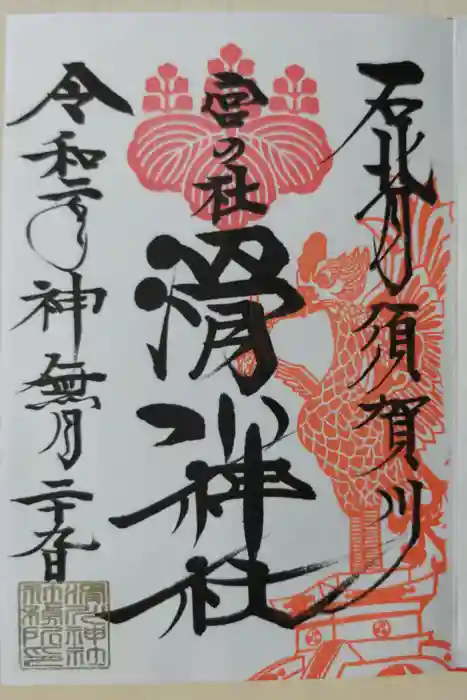 石背須賀川
宮の社
滑川神社
令和元年神無月二十日
滑川神社社務所印